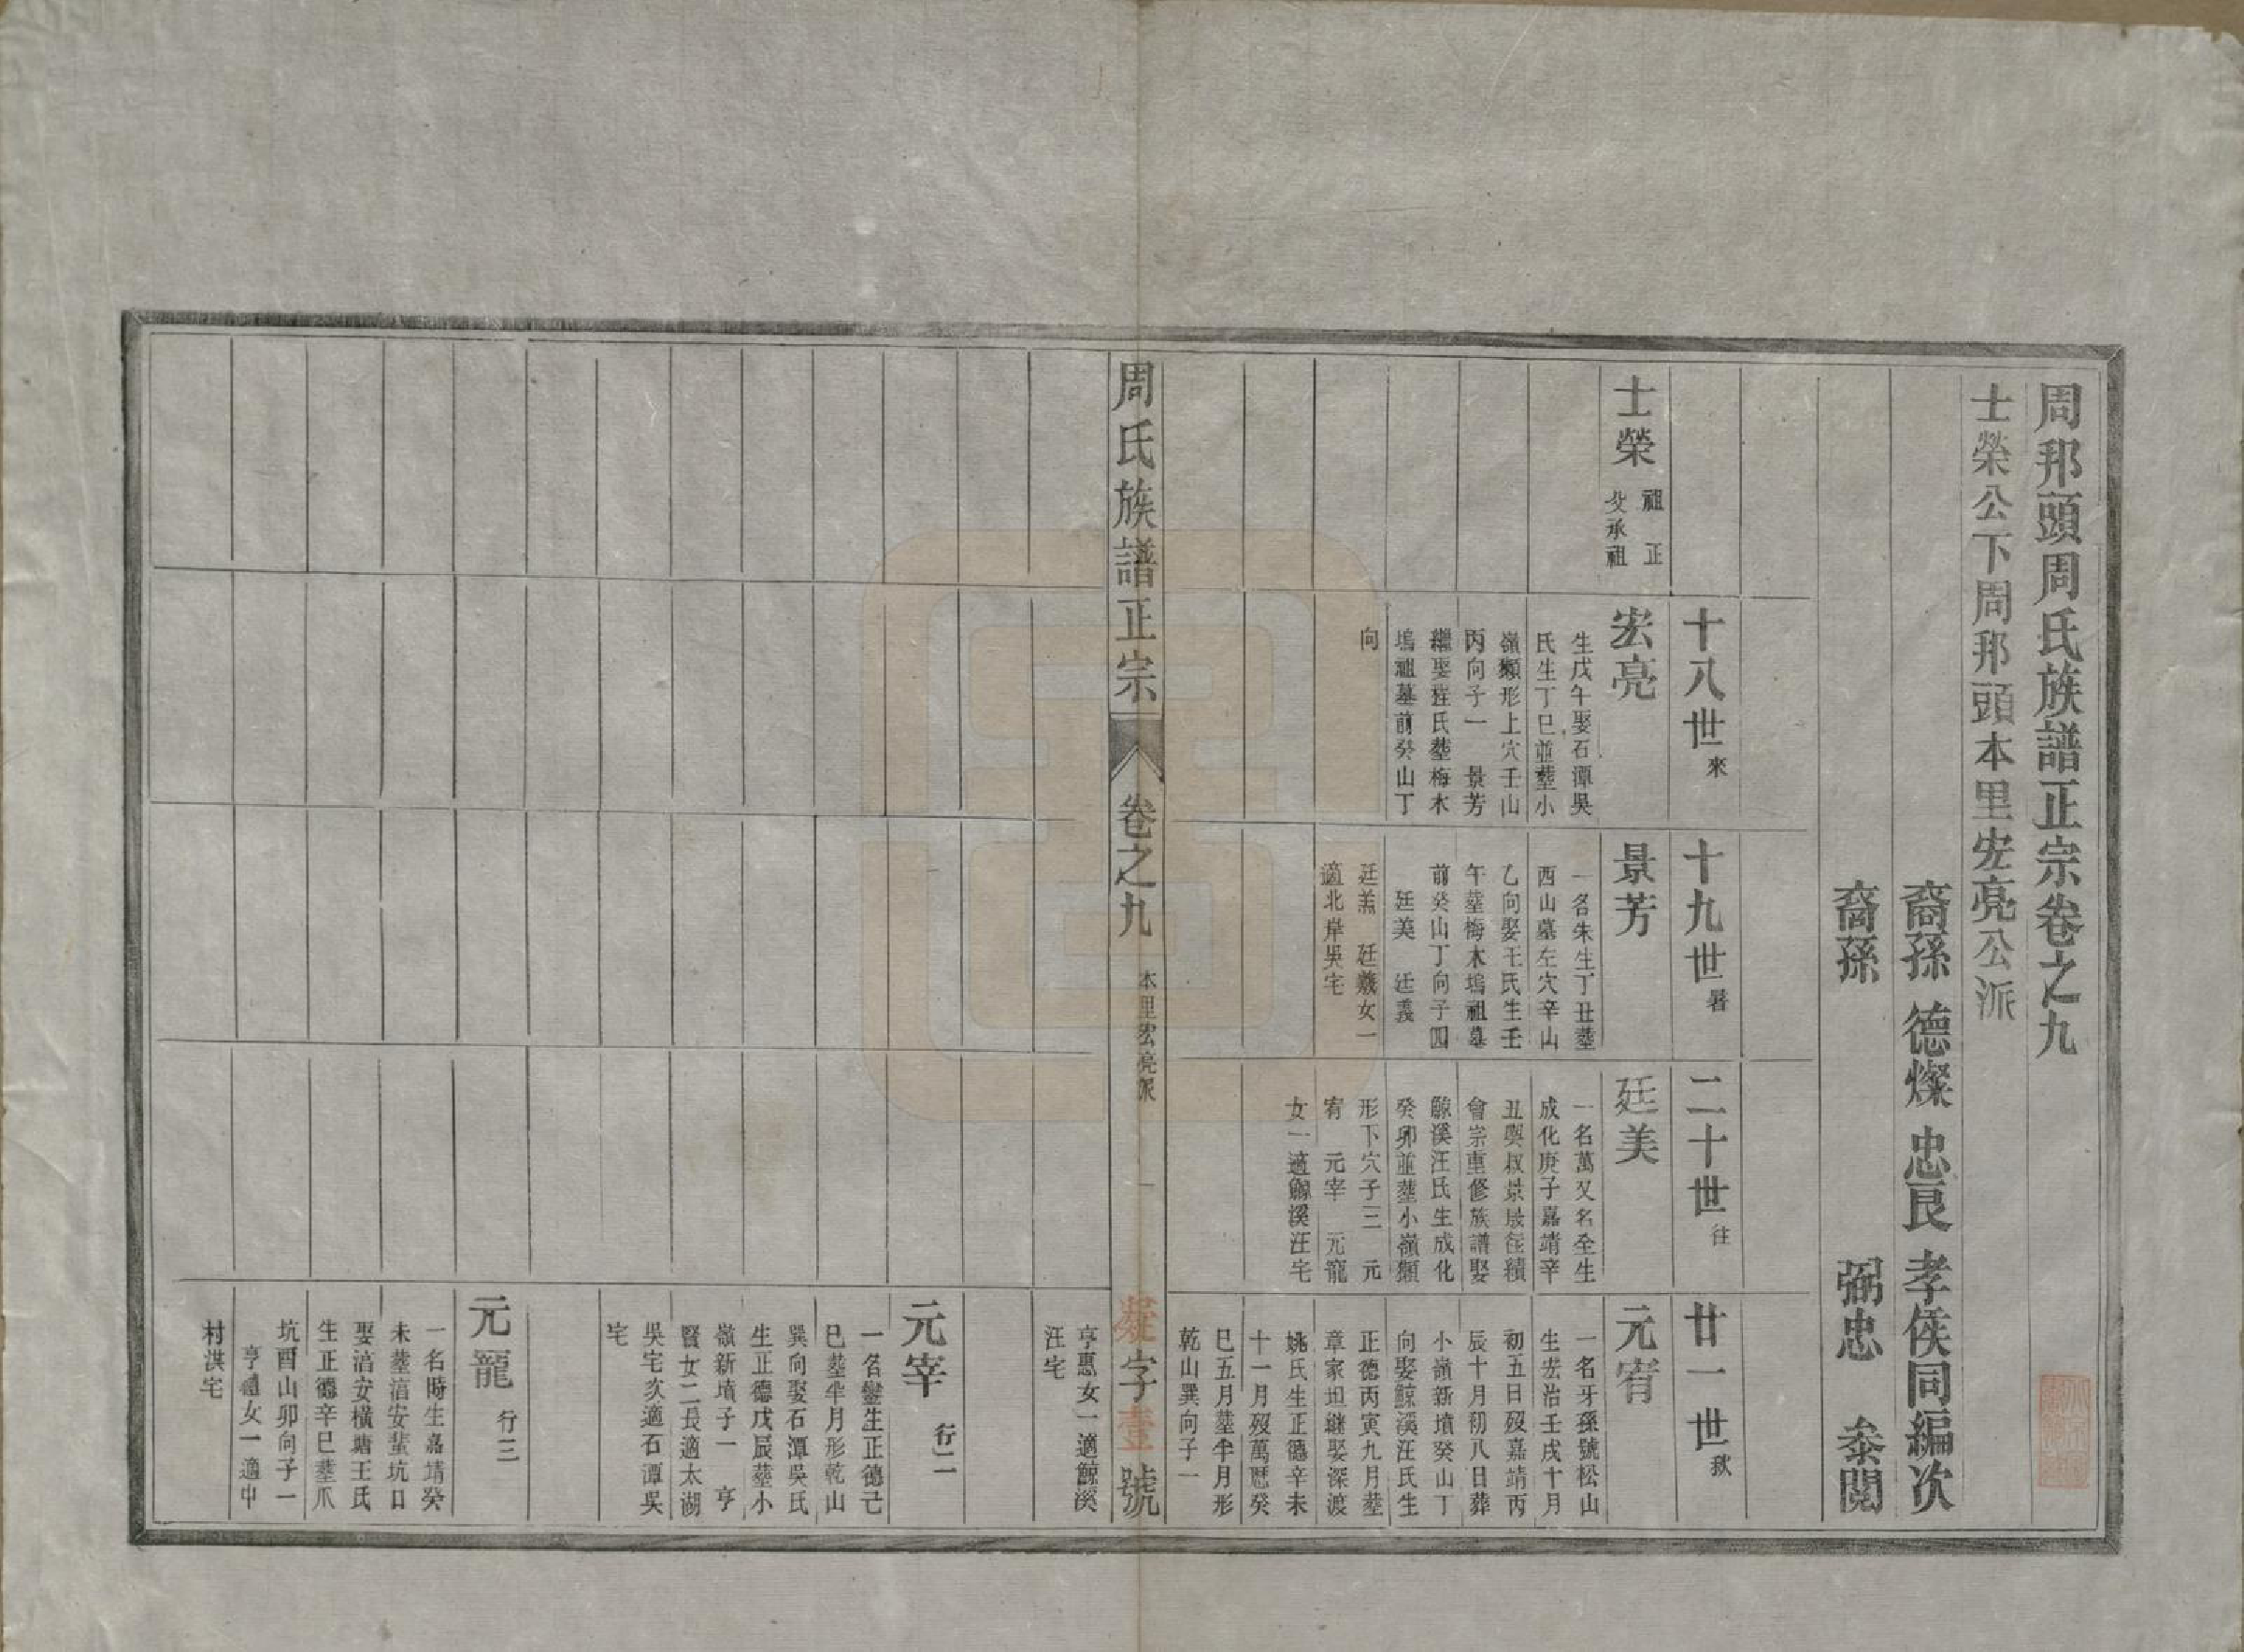 周邦頭周氏族譜正宗卷之九
士榮公下周邦頭本里宏亮公派
裔孫 德燦 忠良 孝侯同編次
裔孫 弼忠 叅閱
十八世 來
十九世 暑
二十世 往
廿一世 秋
士榮
祖 正
父承祖
宏亮
生戊午娶石潭吳
氏生丁巳並塟小
嶺獺形上穴壬山
丙向子一 景芳
繼娶程氏塟梅木
塢祖墓前癸山丁
向
景芳
一名朱生丁丑塟
西山墓左穴辛山
乙向娶王氏生壬
午塟梅木塢祖墓
前癸山丁向子四
廷美 廷義
廷羔 廷羲女一
適北岸吳宅
廷美
一名萬又名全生
成化庚子嘉靖辛
丑與叔景晟往績
會宗重修族譜娶
鯨溪汪氏生成化
癸卯並塟小嶺獺
形下穴子三 元
宥 元宰 元寵
女一適鯨溪汪宅
元宥
一名牙孫號松山
生宏治壬戌十月
初五日歿嘉靖丙
辰十月初八日葬
小嶺新墳癸山丁
向娶鯨溪汪氏生
正德丙寅九月塟
章家坦繼娶深渡
姚氏生正德辛未
十一月歿萬厯癸
巳五月塟半月形
乾山巽向子一
周氏族譜正宗 卷之九 本里宏亮派 一
凝字壹號
亨惠女一適鯨溪
汪宅
元宰 行二
一名鑾生正德己
巳塟半月形乾山
巽向娶石潭吳氏
生正德戊辰塟小
嶺新墳子一 亨
賢女二長適太湖
吳宅次適石潭吳
宅
元寵 行三
一名時生嘉靖癸
未塟湇安蜚坑日
娶湇安橫塘王氏
生正德辛巳塟爪
坑酉山卯向子一
亨禮女一適中
村洪宅